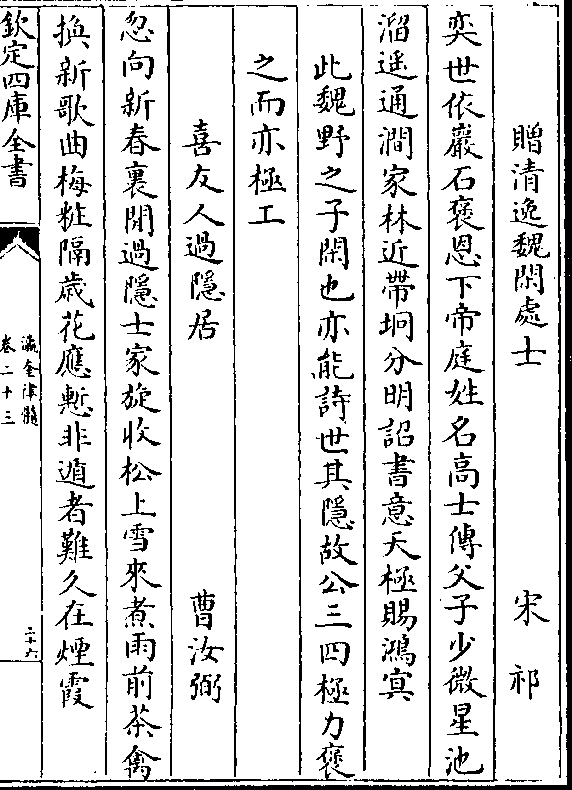 贈清逸魏閑處士 宋祁
奕世依巖石褒恩下帝庭姓名高士傳父子少微星池
溜遥通澗家林近帶坰分明詔書意天極賜鴻冥
此魏野之子閑也亦能詩世其隱故公三四極力褒
之而亦極工
喜友人過隱居 曹汝弼
忽向新春裏閒過隱士家旋收松上雪來煮雨前茶禽
換新歌曲梅粧隔歲花應慙非遁者難久在煙霞
欽定四庫全書
瀛奎律髓
卷二十三
二十六